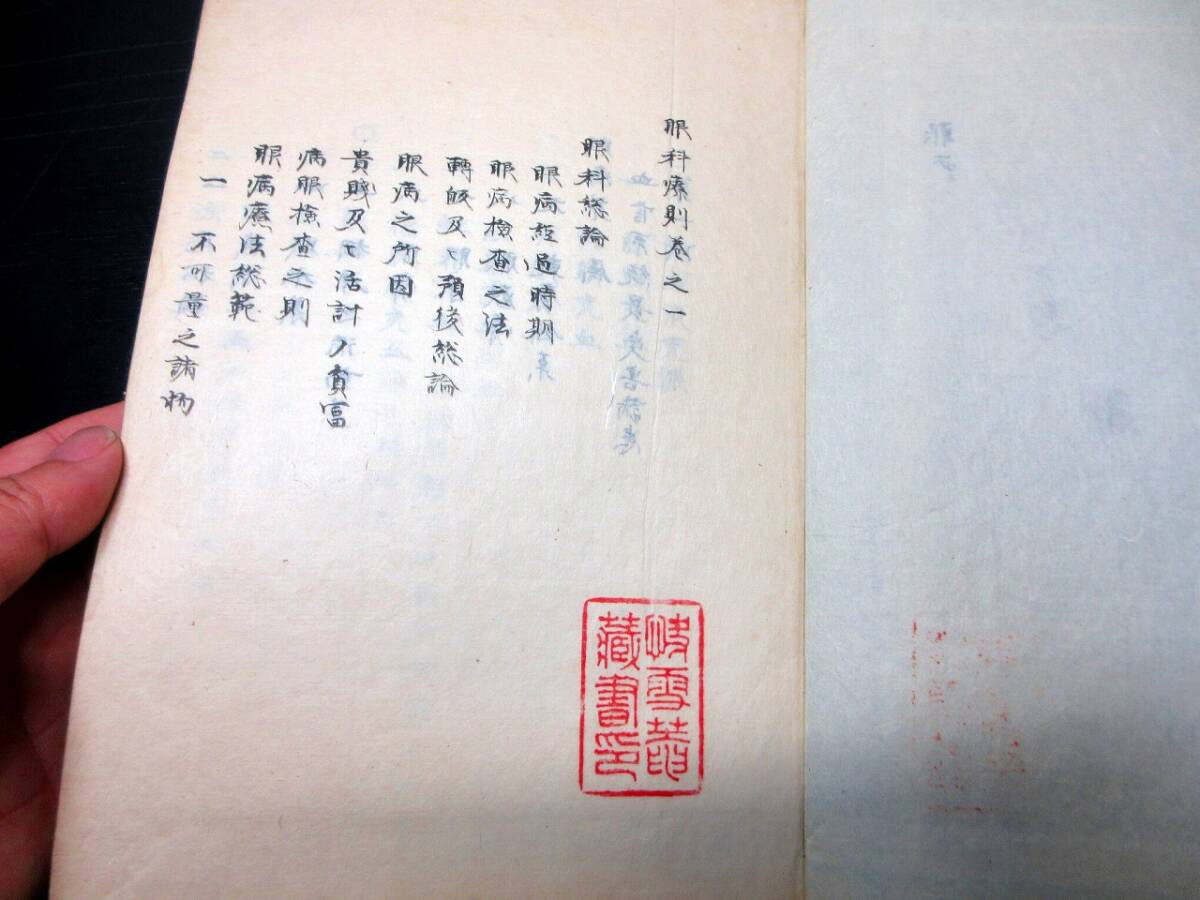 眼科療則巻之一
眼科総論
眼病経過時期
眼病検査之法
轉皈及ヒ預後総論
眼病之所因
貴賤及ヒ活計ノ貧富
病眼検査之則
眼病療法総範
一 不可量之諸物
藏書印